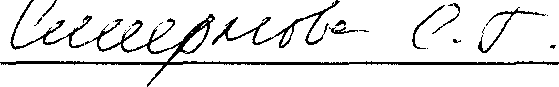 Смирнова С.Г.